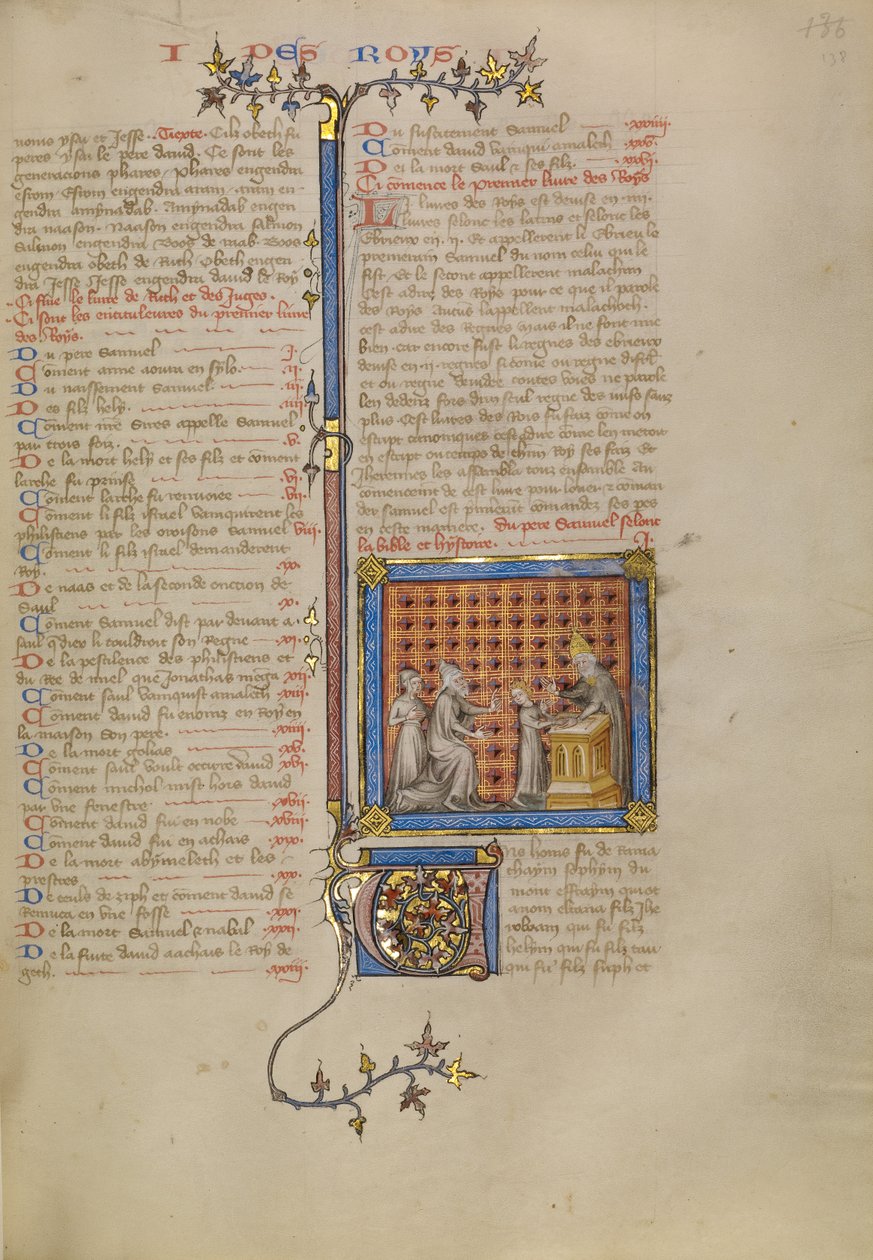 I DES ROYS
186
138
noms ysai et Jesse. Tiexte. Cilz obeth fu
peres ysai le pere david. Ce sont les
generacions phares. Phares engendra
esrom. Esrom engendra aram. aram en-
gendra amynadab. Amynadab engen
dra naason. Naason engendra salmon
Salmon engendra Boos de raab. Boos
engendra obeth de Ruth. Obeth engen
dra Jesse. Jesse engendra david le Roy
Ci fine le livre de Ruth et des Juges.
Ci sont les entituleures du premier livre
des Roys.
Du pere Samuel I.
Coment anne aoura en sylo. II.
Du naissement Samuel. III.
Des filz hely. IIII.
Coment nre Sires appelle Samuel
par trois foiz. V.
De la mort hely et ses filz et coment
larche fu prinse VI.
Coment larche fu renvoiee VII.
Coment li filz israel vainquirent les
philistiens par les oroisons Samuel VIII.
Coment li filz israel demanderent
Roy. IX.
De naas et de la seconde onction de
Saul X.
Coment Samuel dist par devant a
saul q dieu li touldroit son Regne XI.
De la pestilence des philistiens et
du Ree de miel que Jonathas menga XII.
Coment saul vainquist amalech XIII.
Coment david fu enoint en Roy en
la maison son pere. XIIII.
De la mort golias XV.
Coment saul voult occirre david XVI.
Coment michol mist hors david
par une fenestre XVII.
Coment david fui en nobe XVIII.
Coment david fui en achais XIX.
De la mort abymeleth et les
prestres XX.
De ceuls de ziph et coment david se
Remuca en une fosse XXI.
De la mort Samuel & nabal XXII.
De la fuite david a achais le Roy de
geth. XXIII.
Du suscitement Samuel XXIIII.
Coment david vainqui amalech XXV.
De la mort Saul & ses filz. XXVI.
Ci comence le premier livre des Roys
Li livres des Roys est devise en IIII.
livres selonc les latins et selonc les
Ebrieux en II. Et appellerent li Ebrieu le
premerain Samuel du nom celui qui le
fist. Et le secont appellerent malachim
Cest a dire des Roys pour ce que il parole
des Roys. Aucus lappellent malachoth.
cest a dire des Regnes mais il ne font mie
bien. car encore fust li regnes des ebrieux
devise en II regnes si come ou regne disrl
et ou regne de iude toutes voies ne parole
len dedenz fors dun seul regne des iuifs sanz
plus. Cest livres des Rois fu faiz come on
escript croniques cest a dire come len metoit
en escript ou temps de chun Roy ses faiz. Et
Jheremies les assembla touz ensemble. Au
comencement de cest livre pour louer & coman
der samuel est primiers comandez ses peres
en ceste maniere. Du pere Samuel selonc
la bible et hystoire. I.
Uns homs fu de Rama
thaym sophym du
mont effraym qui ot
a nom elcana filz Jhe
roboam qui fu filz
helym qui fu filz tau
qui fu filz suph et